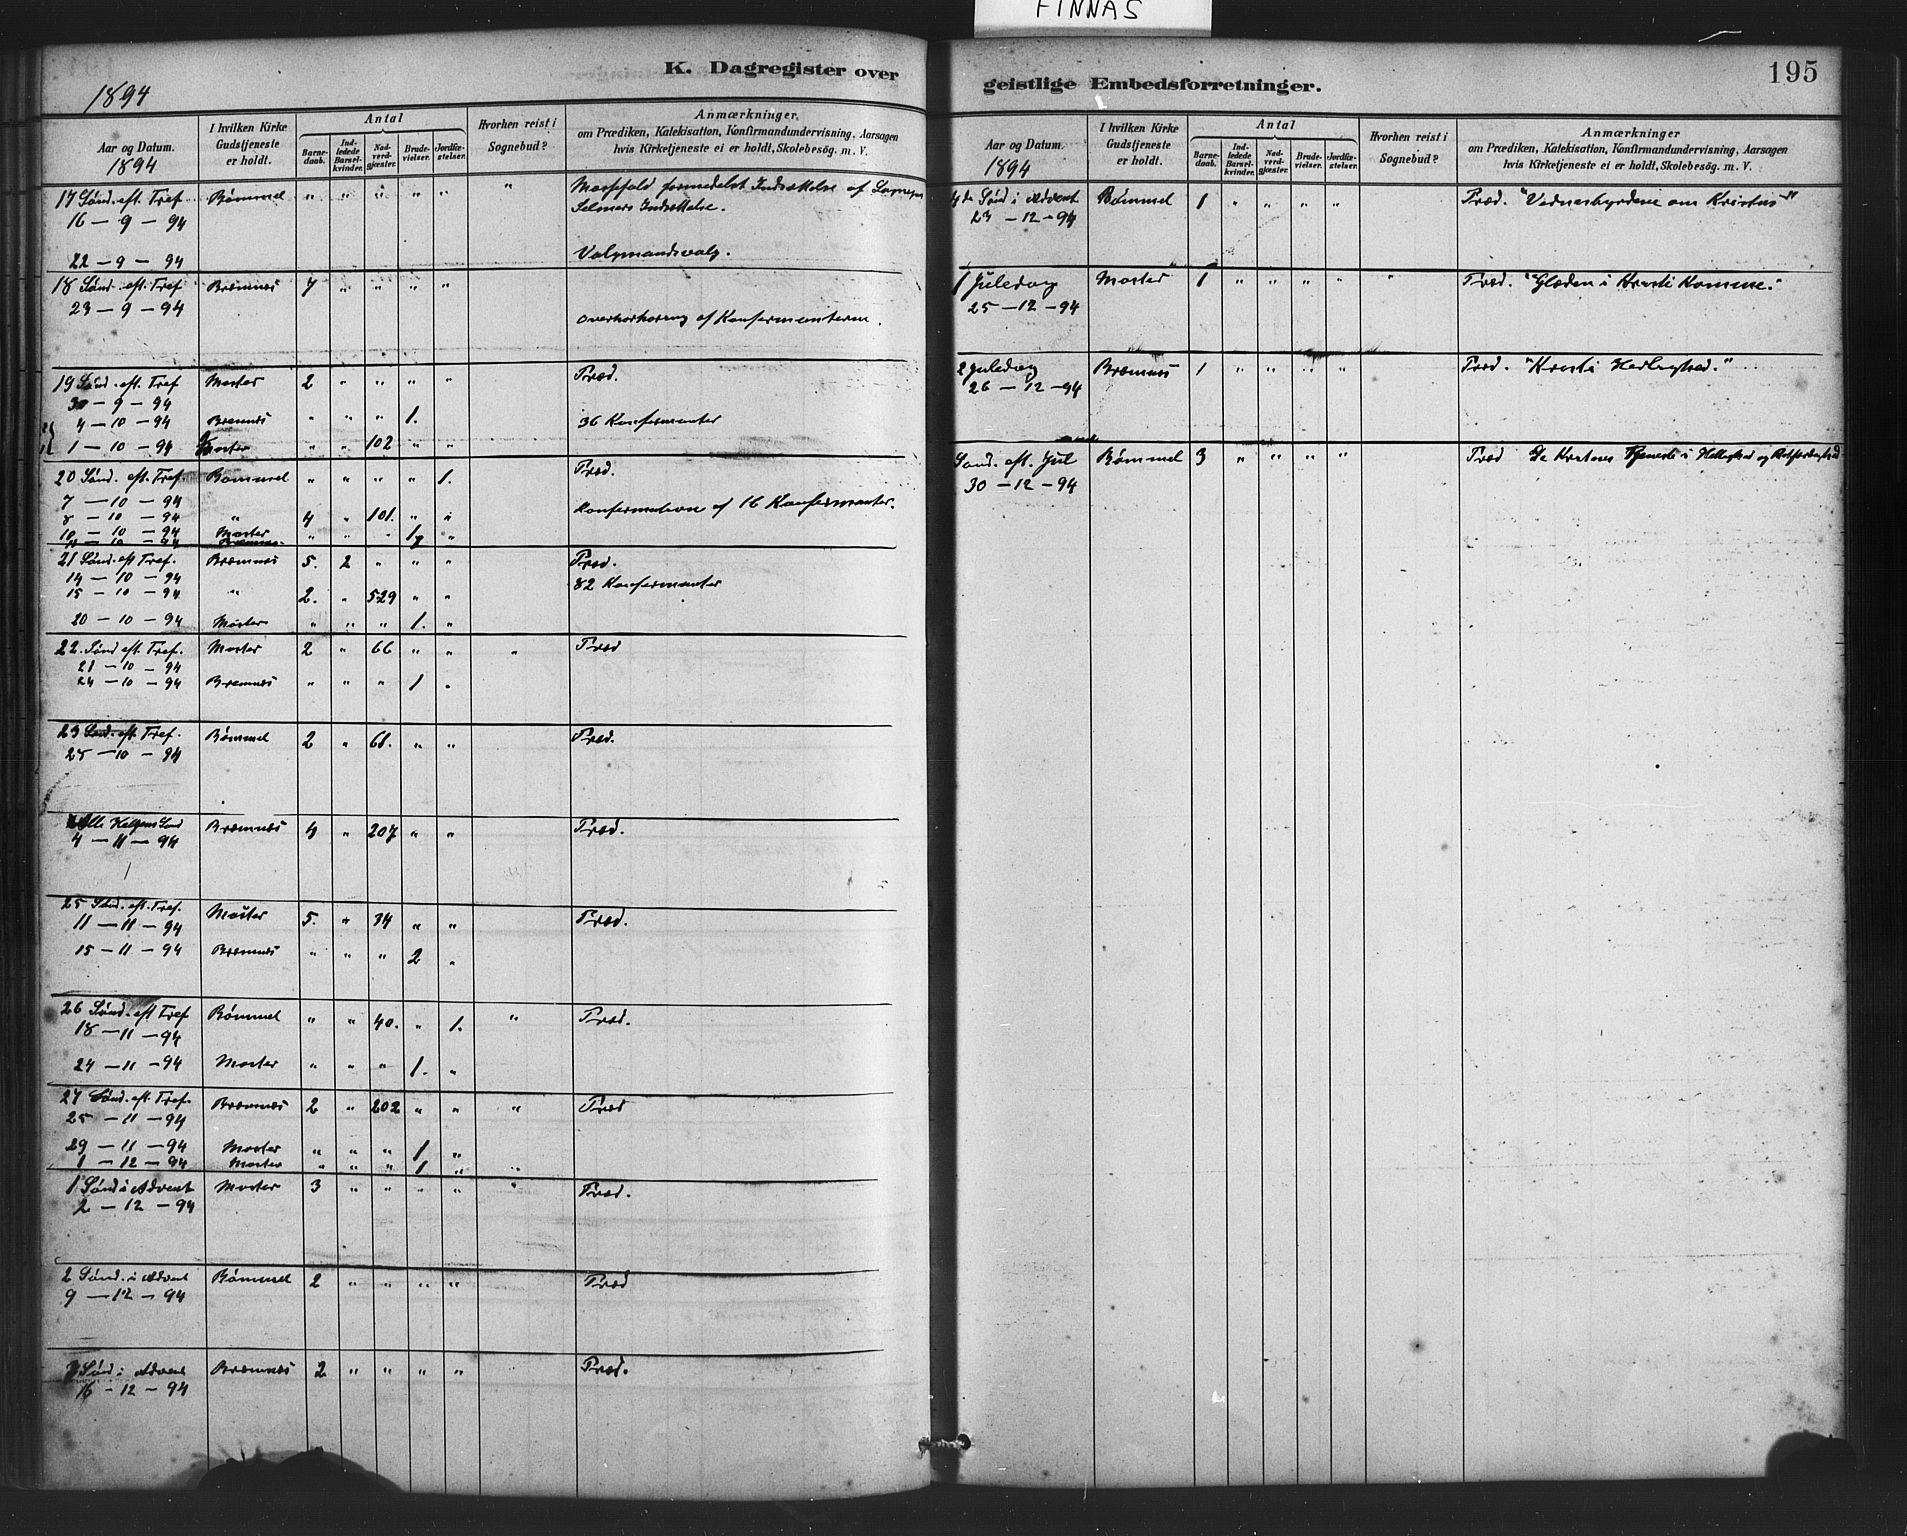 FINNÅS
K. Dagregister over
1894
Aar og Datum.
1894
I hvilken Kirke Gudstjeneste er holdt.
Antal
Barnedaab.
Indledede Barselkvinder.
Nadverdgjæster.
Brudevielser.
Jordfæstelser.
Hvorhen reist i Sognebud?
Anmærkninger.
om Prædiken, Katekisation, Konfirmandundervisning, Aarsagen
hvis Kirketjeneste ei er holdt, Skolebesøg. m. V.
17 Sønd. eft. Tref Bømmel " " " " " " Messefald formedelst Indsættelse af
16 - 9 - 94 Indsættelse.
22 - 9 - 94 Valgmandsvalg.
18 Sønd. eft. Tref Bremnes 7 " " " "
23 - 9 - 94
af Konfirmanterne.
19 Sønd. eft. Tref Moster 2 " " " " Præd.
30 - 9 - 94
4 - 10 - 94 Bremnes " " " 1. 36 Konfirmanter
1 - 10 - 94 Moster " " 102 " "
20 Sønd. eft. Tref. Bømmel " " " " 1. Præd.
7 - 10 - 94 Konfirmation af 16 Konfirmanter.
8 - 10 - 94 " 4 " 101. " "
10 - 10 - 94 Moster " " " 1 "
11 - 10 - 94 Bremnes
21 Sønd. eft Tref. Bremnes 5. 2 " " " Præd.
14 - 10 - 94 82 Konfirmanter
15 - 10 - 94 " 2. " 529 " "
20 - 10 - 94 Moster " " " 1. "
22. Sønd eft. Tref. Moster 2 " 66 " " " Præd
21 - 10 - 94
24 - 10 - 94 Bremnes " " " 1 "
23 Sønd. eft. Tref. Bømmel 2 " 68. " " Præd.
25 - 10 - 94
Alle Helgens Sønd Bremnes 4 " 207 " " Præd.
4 - 11 - 94
25 Sønd. eft. Tref. Moster 5. " 34 " " Præd.
11 - 11 - 94
15 - 11 - 94 Bremnes " " " 2 "
26 Sønd. eft Tref Bømmel " " 40. " 1. " Præd.
18 - 11 - 94
24 - 11 - 94 Moster " " " 1. "
27 Sønd. eft. Tref. Bremnes 2 " 202 " " " Præd
25 - 11 - 94
29 - 11 - 94 Moster " " " 1 "
1 - 12 - 94 Moster " " " 1 " "
1 Sønd i Advent Moster 3 " " " " " Præd.
2 - 12 - 94
2 Sønd. i Advent Bømmel 2 " " " " Præd
9 - 12 - 94
3 Sønd i Advent Bremnes 2 " " " " Præd.
16 - 12 - 94
geistlige Embedsforretninger.
195
Aar og Datum.
1894
I hvilken Kirke Gudstjeneste er holdt.
Antal
Barnedaab.
Indledede Barselkvinder.
Nadverdgjæster.
Brudevielser.
Jordfæstelser.
Hvorhen reist i Sognebud?
Anmærkninger
om Prædiken, Katekisation, Konfirmandundervisning, Aarsagen
hvis Kirketjeneste ei er holdt, Skolebesøg. m. V.
4de Sønd i Advent Bømmel 1 " " " " Præd. "Vidnesbyrdene om Kristus"
23 - 12 - 94
1 Juledag Moster 1 " " " " " Præd. "Glæden i Kristi Komme."
25 - 12 - 94
2 Juledag Bremnes 1 " " " " Præd. "Kristi Herlighed."
26 - 12 - 94
Sønd. eft. Jul Bømmel 3 " " " " Præd De Kristnes Tjeneste i Hellighed og Retfærdighed
30 - 12 - 94